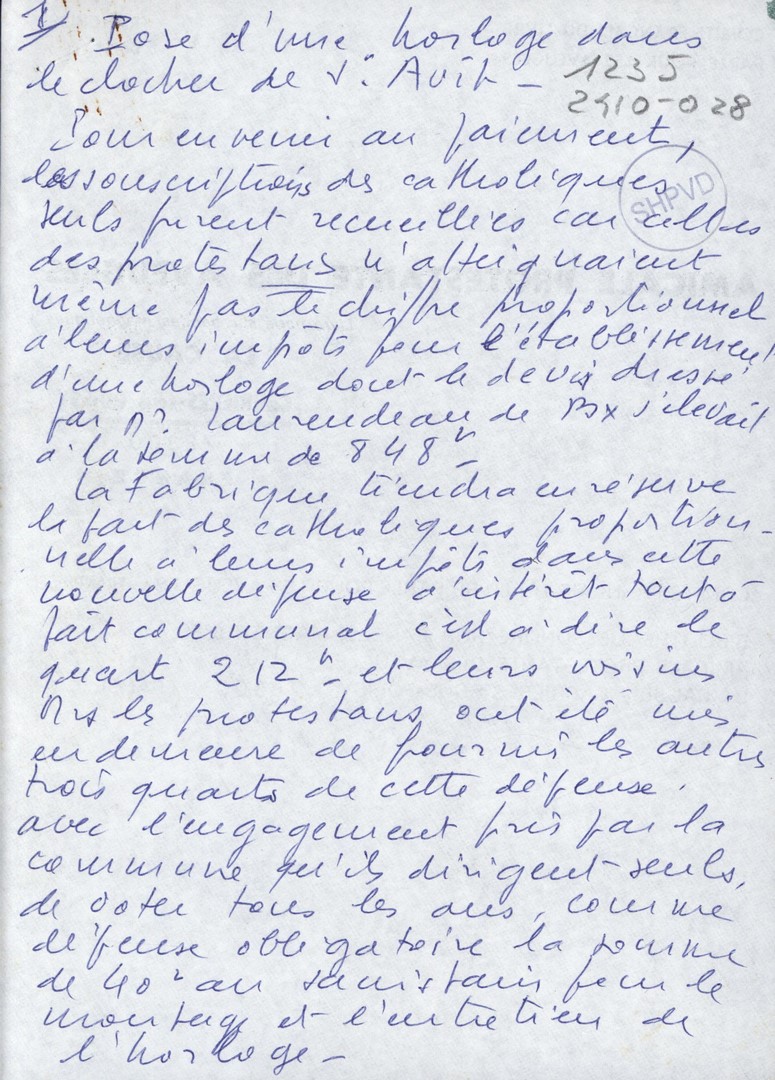 1/ . Pose d'une horloge dans
le clocher de St. Avit -
1235
2410-028
Pour en venir au paiement,
les souscriptions des catholiques
seuls furent recueillies car celles
des protestans n'atteignaient
même pas le chiffre proportionnel
à leurs impôts pour l'établissement
d'une horloge dont le devis dressé
par Mr. Laurendeau de Bx s'élevait
à la somme de 848 fr
SHPVD
La Fabrique tiendra en réserve
la part des catholiques proportion-
nelle à leurs impôts dans cette
nouvelle dépense d'intérêt tout à
fait communal c'est à dire le
quart 212 fr - et leurs voisins
Mrs les protestans ont été mis
en demeure de fournir les autres
trois quarts de cette dépense.
avec l'engagement pris par la
commune qu'ils dirigent seuls,
de voter tous les ans, comme
dépense obligatoire la somme
de 40 fr au sacristain pour le
montage et l'entretien de
l'horloge -